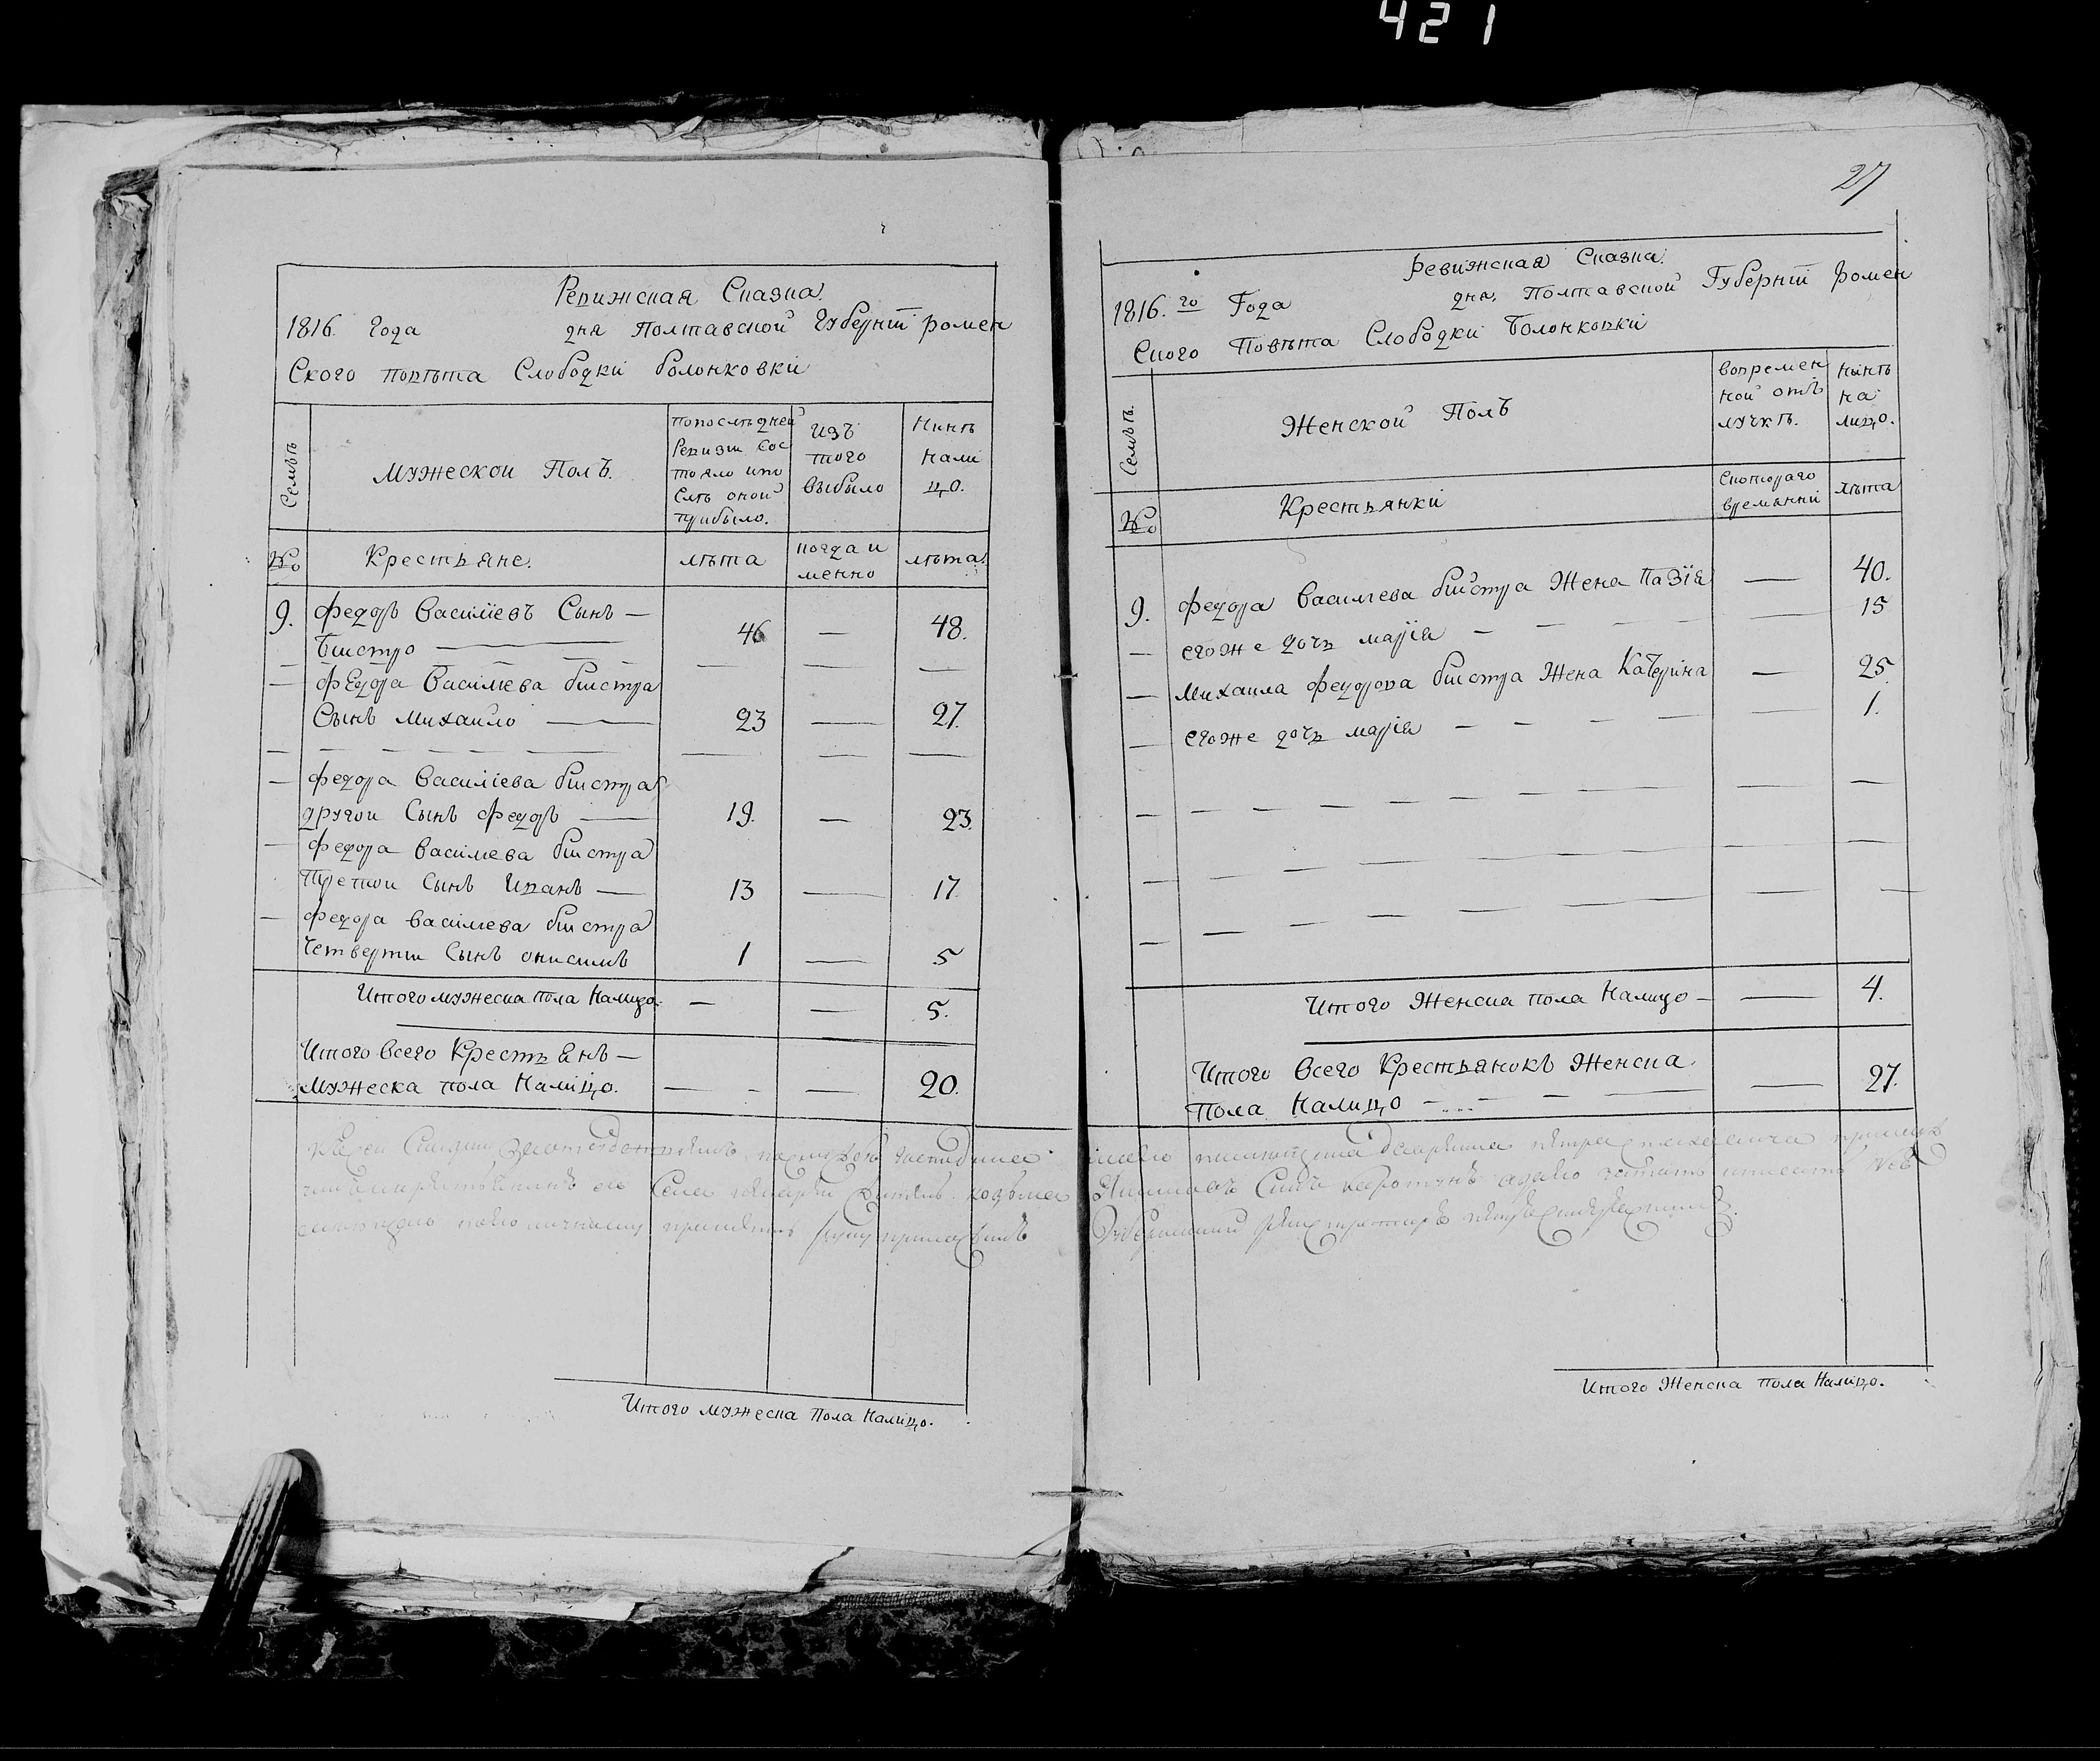 421
Ревижская Сказка.
1816. Года дня Полтавской Губерніи ромен
Ского повѣта Слободки болонковки
Семьѣ
Мужескои Полъ.
Попослѣдней
Ревизіи Сос
тояло ипо
слѣ оной
прибыло.
изъ
того
выбыло
Нинѣ
нали
цо.
№
Крестьяне.
лѣта
когда и
менно
лѣта.
9. федоръ Василіевъ Сынъ —
Бистро — 46 — 48.
— федора Василіева бистра
Сынъ Михаило — 23 — 27.
— федора Василіева бистра
другои Сынъ федоръ — 19. — 23.
— федора Василіева бистра
третои Сынъ Иванъ — 13 — 17.
— федора василіева бистра
четверти Сынъ онисимъ 1 — 5
Итого мужеска пола Налицо. — — 5.
Итого всего Крестьянъ —
мужеска пола Налицо. — - — 20.
Итого мужеска Пола Налицо.
27
Ревижская Сказка.
1816.го Года дня. Полтавской Губерніи ромен
Ского Повѣта Слободки Болонковки
Семьѣ.
Женской Полъ
вовремен
ной отъ
лучкѣ.
нынѣ
на
лицо.
№
Крестьянки
Скоторого
времянни
лѣта
9. федора Василіева бистра Жена Пазія — 40.
— егоже дочь марія — — — — — 15
— Михаила федорова бистра Жена Катерина — 25.
— егоже дочь марія — — — — — 1.
Итого Женска пола Налицо — — 4.
Итого Всего Крестьянокъ Женска
Пола Налицо — — — — — 27.
Итого Женска пола Налицо.